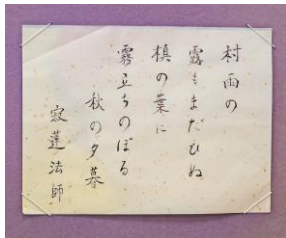 村雨の
露もまだひぬ
槙の葉に
霧立ちのぼる
秋の夕暮
寂蓮法師